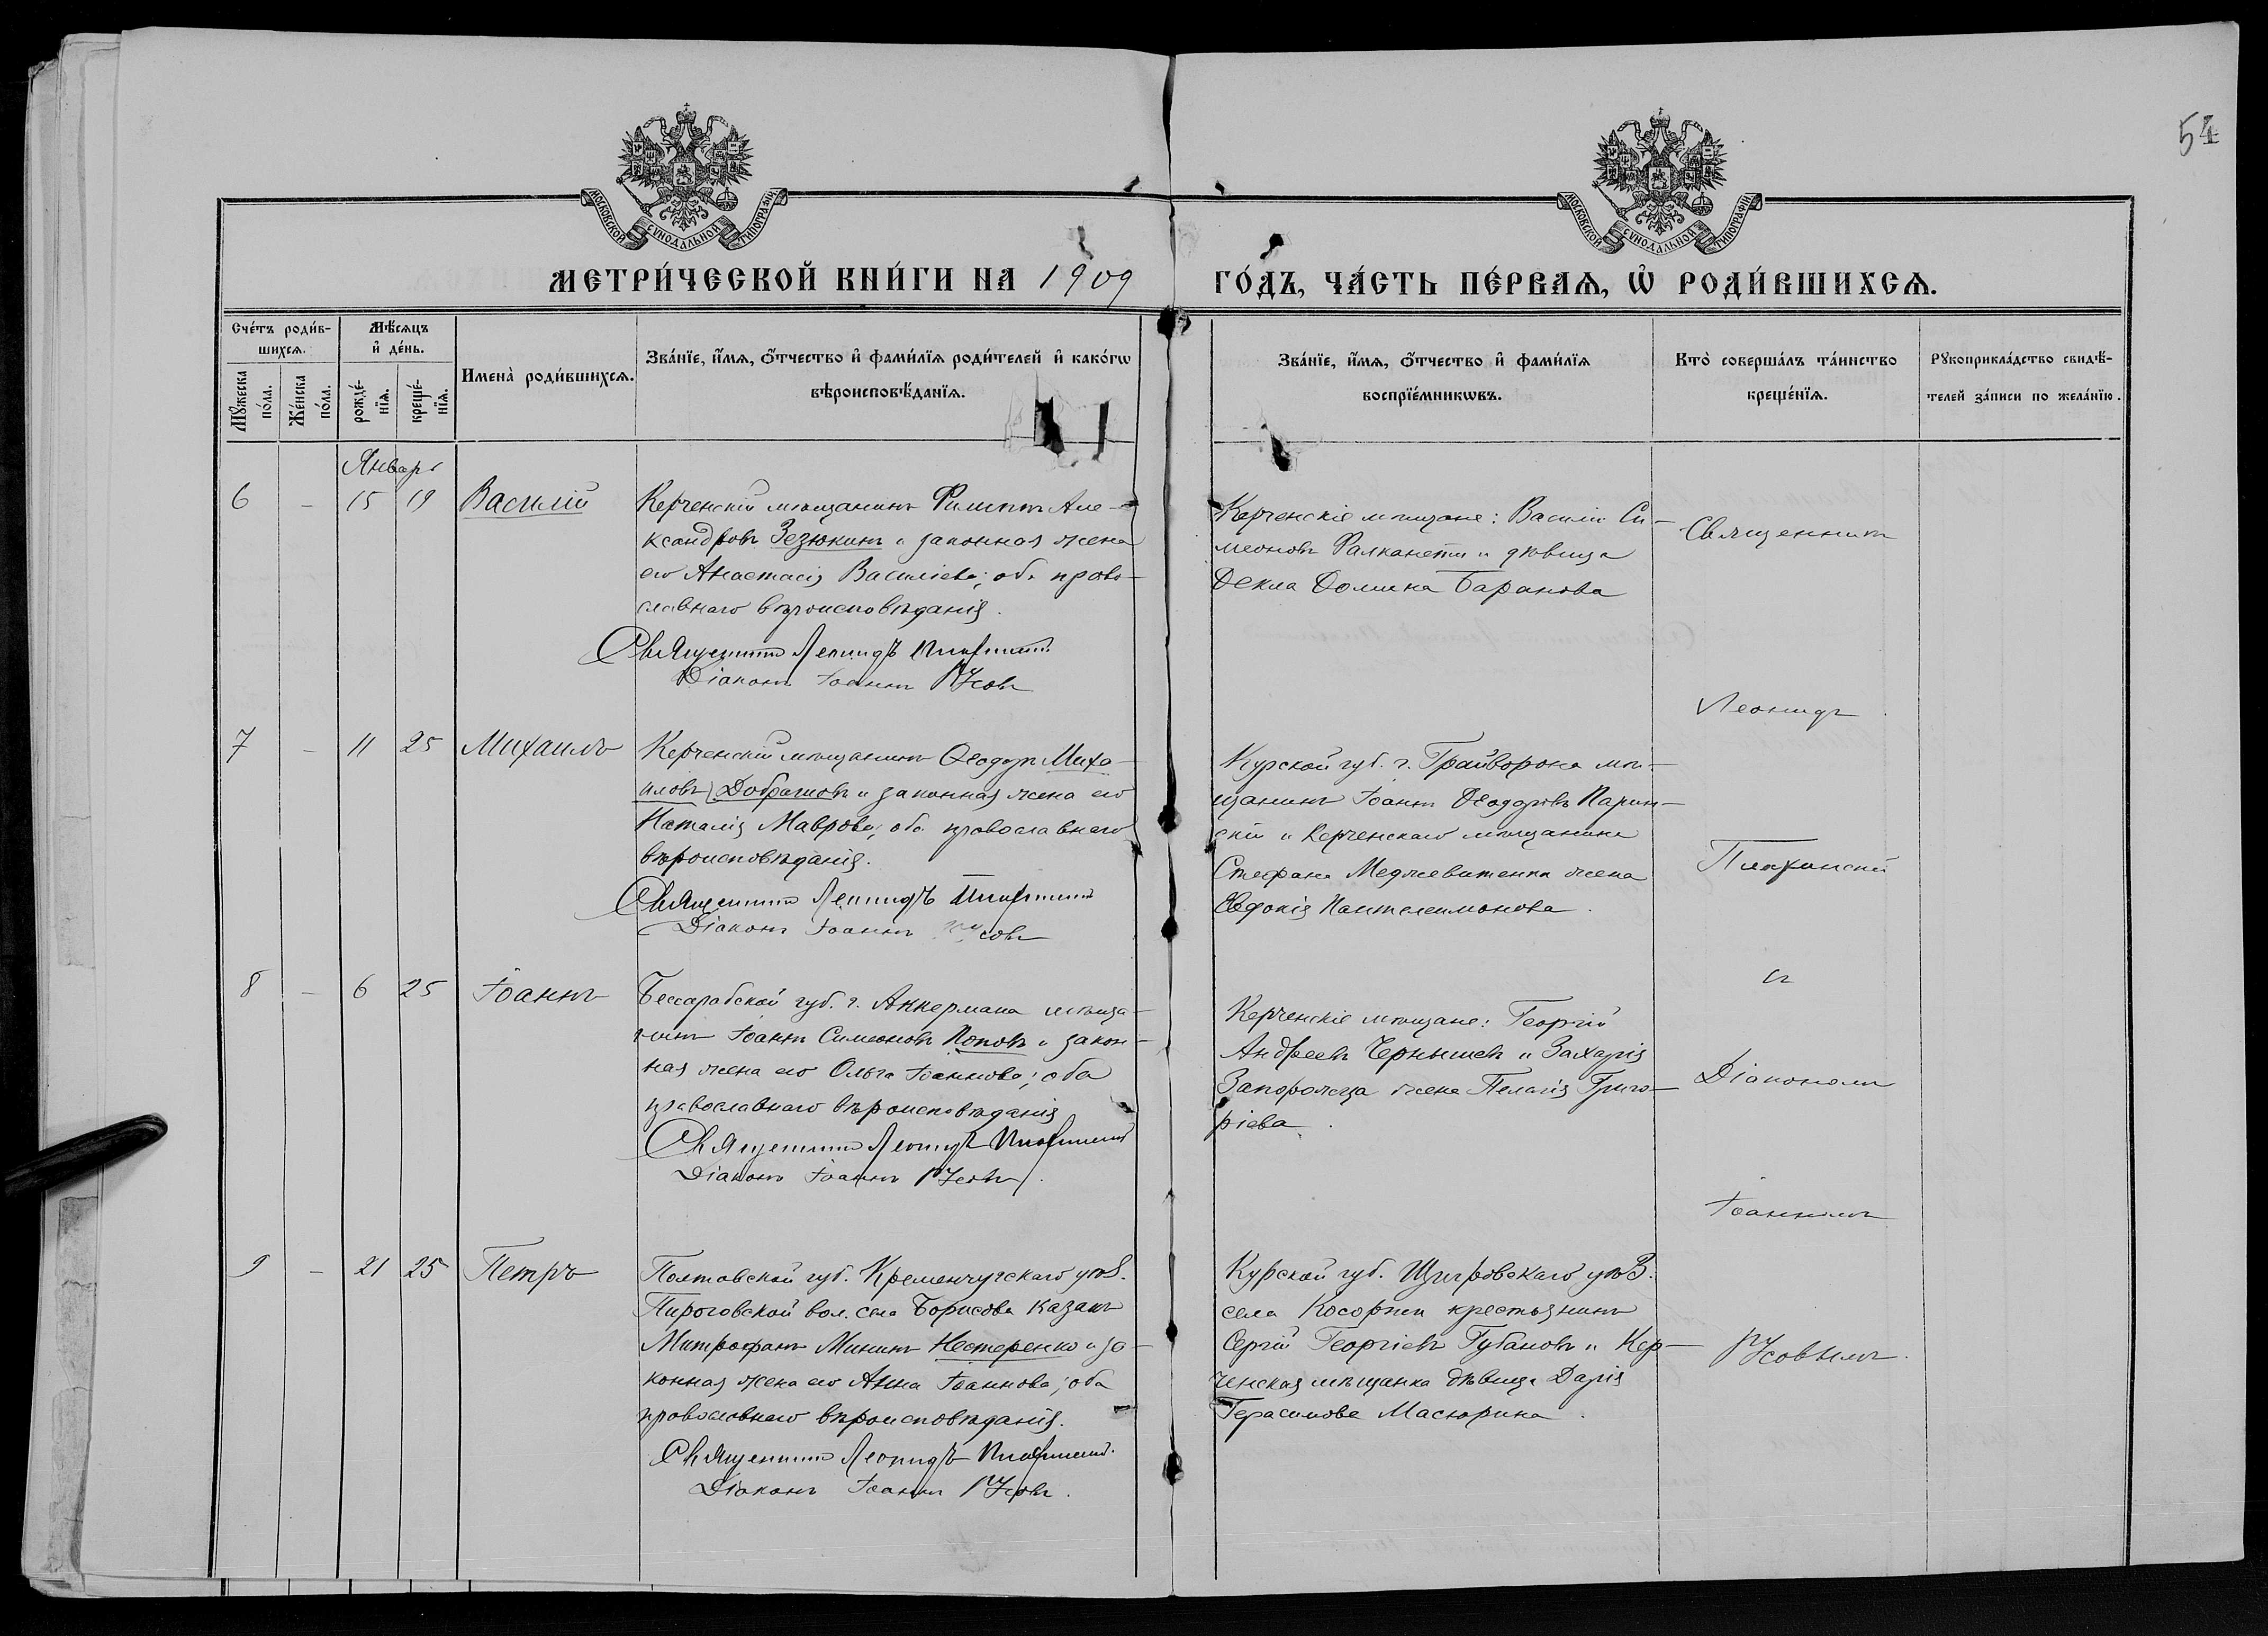 54
МОСКОВСКОЙ СѴНОДАЛЬНОЙ ТИПОГРАФІИ
МОСКОВСКОЙ СѴНОДАЛЬНОЙ ТИПОГРАФІИ
МЕТРИ́ЧЕСКОЙ КНИ́ГИ НА 1909
ГО́ДЪ, ЧА́СТЬ ПЕ́РВАѦ, Ѡ҆ РОДИ́ВШИХСѦ.
Сче́тъ роди́в-
шихсѧ.
Мꙋ́жеска
по́ла.
Же́нска
по́ла.
Мѣ́сѧцъ
и҆ де́нь.
рожде́-
нїѧ.
креще́-
нїѧ.
Имена̀ роди́вшихсѧ.
Зва́нїе, и҆́мѧ, ѻ҆́тчество и҆ фами́лїѧ роди́телей и҆ како́гѡ
вѣроисповѣ́данїѧ.
Зва́нїе, и҆́мѧ, ѻ҆́тчество и҆ фами́лїѧ
воспрїе́мникѡвъ.
Кто̀ соверша́лъ та́инство
креще́нїѧ.
Рꙋкоприкла́дство свидѣ́-
телей за́писи по жела́нїю.
Январь
6 - 15 19 Василій
Керченскій мѣщанинъ Филиппъ Але-
ксандровъ Зезюкинъ и законная жена
его Анастасія Васильева; оба право-
славнаго вѣроисповѣданія.
Священникъ Леонидъ
Діаконъ Іоаннъ Усовъ
Керченскіе мѣщане: Василій Си-
меоновъ Фалканети и дѣвица
Ѳекла Ѳомина Баранова
Священникъ
Леонидъ
7 - 11 25 Михаилъ
Керченскій мѣщанинъ Ѳеодоръ Миха-
иловъ Добрашовъ и законная жена его
Наталія Маврова; оба православнаго
вѣроисповѣданія.
Священникъ Леонидъ
Діаконъ Іоаннъ Усовъ
Курской губ. г. Грайворона мѣ-
щанинъ Іоаннъ Ѳеодоровъ Парин-
скій и Керченскаго мѣщанина
Стефана жена
Евдокія Пантелеимонова.
съ
8 - 6 25 Іоаннъ
Бессарабской губ. г. Аккермана мѣща-
нинъ Іоаннъ Симеоновъ Поповъ и закон-
ная жена его Ольга Іоаннова; оба
православнаго вѣроисповѣданія
Священникъ Леонидъ
Діаконъ Іоаннъ Усовъ.
Керченскіе мѣщане: Георгій
Андреевъ Чернышевъ и Захарія
Запорожца жена Пелагія Григо-
ріева.
Діакономъ
Іоанномъ
9 - 21 25 Петръ
Полтавской губ. Кременчугскаго уѣз.
Пироговской вол. села Борисова казакъ
Митрофанъ Мининъ Нестеренко и за-
конная жена его Анна Іоаннова; оба
православнаго вѣроисповѣданія.
Священникъ Леонидъ
Діаконъ Іоаннъ Усовъ.
Курской губ. Щигровскаго уѣз.
села Косоржи крестьянинъ
Сергій Георгіевъ Губановъ и Кер-
ченская мѣщанка дѣвица Дарія
Герасимова Масюрина.
Усовымъ.